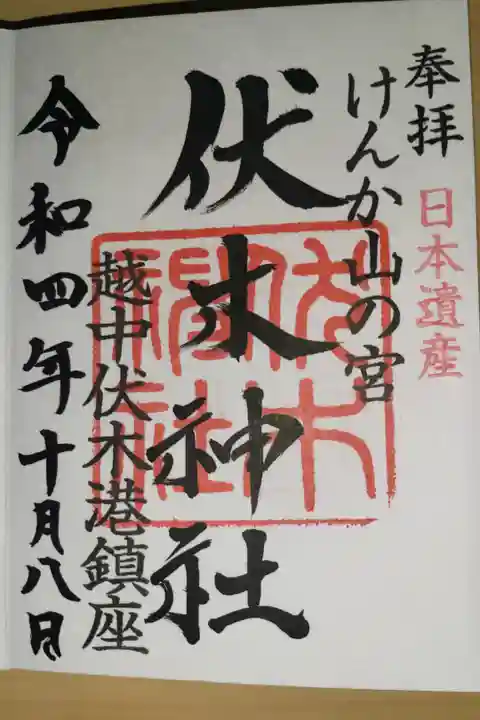 奉拝
日本遺産
けんか山の宮
伏木神社
越中伏木港鎮座
令和四年十月八日